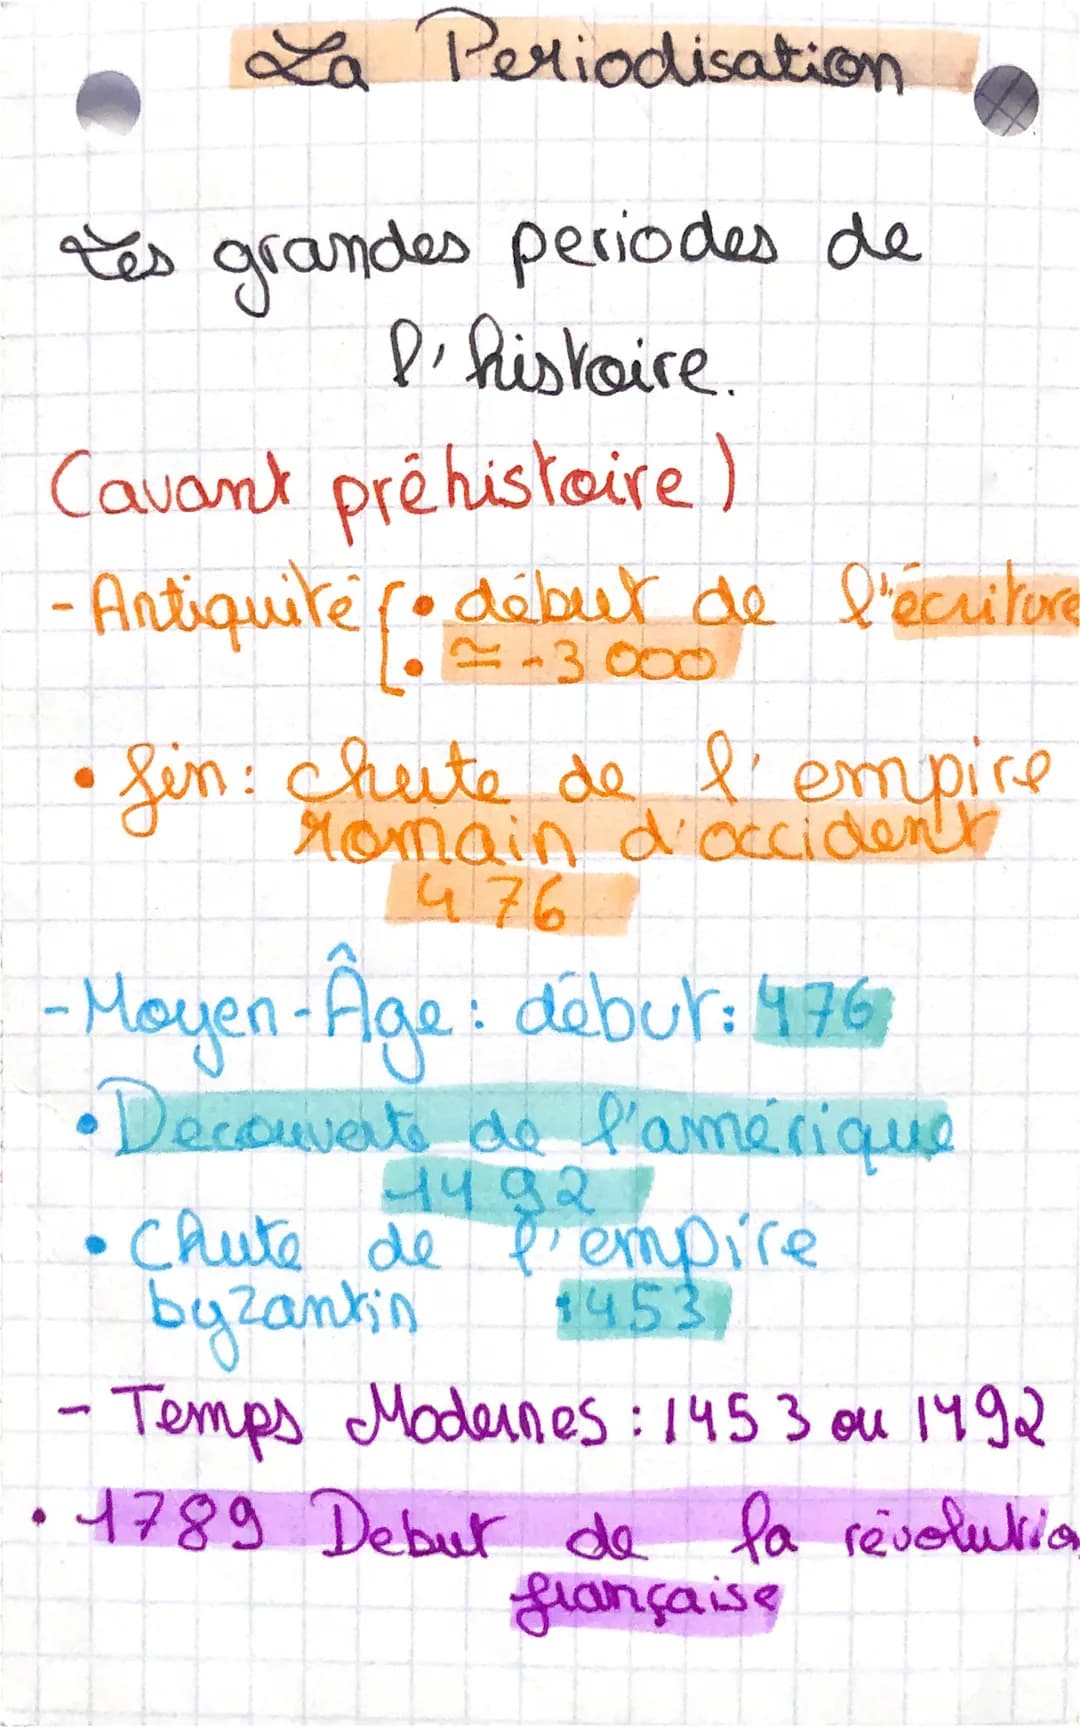 La Periodisation
Les grandes periodes de
l'histoire.
(avant préhistoire)
- Antiquité • début de l'écriture
• ≃ -3 000
• fin: chute de l'empire
romain d'occident
476
- Moyen-Âge: début: 476
• Decouverte de l'amérique
1492
• Chute de l'empire
byzantin 1453
- Temps Modernes: 1453 ou 1492
• 1789 Debut de la révolution
française